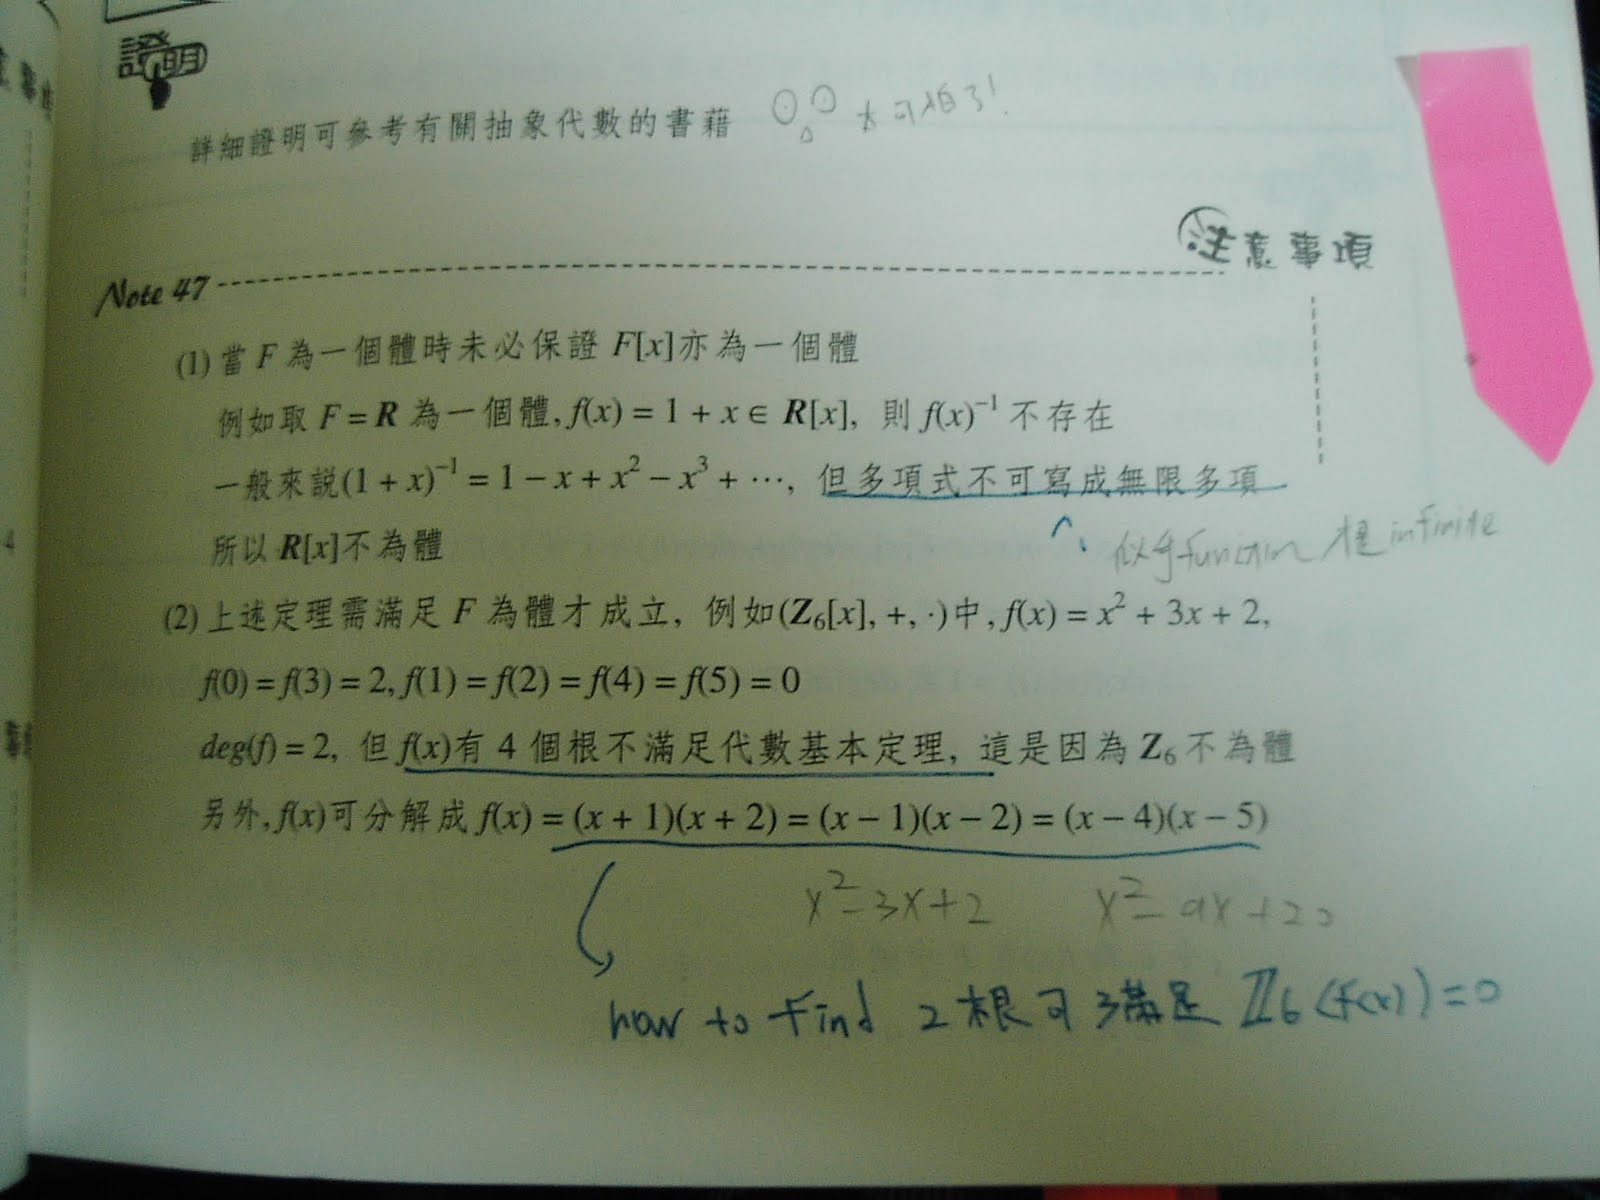 證明
詳細證明可參考有關抽象代數的書藉 太可怕了!
注意事項
Note 47
(1) 當 F 為一個體時未必保證 F[x]亦為一個體
例如取 F = R 為一個體, f(x) = 1 + x ∈ R[x], 則 f(x)⁻¹ 不存在
一般來説(1 + x)⁻¹ = 1 − x + x² − x³ + ⋯, 但多項式不可寫成無限多項
所以 R[x]不為體
似乎function 才是infinite
(2) 上述定理需滿足 F 為體才成立, 例如(Z₆[x], +, ·)中, f(x) = x² + 3x + 2,
f(0) = f(3) = 2, f(1) = f(2) = f(4) = f(5) = 0
deg(f) = 2, 但 f(x)有 4 個根不滿足代數基本定理, 這是因為 Z₆ 不為體
另外, f(x)可分解成 f(x) = (x + 1)(x + 2) = (x − 1)(x − 2) = (x − 4)(x − 5)
x² − 3x + 2 x² − 9x + 20
how to find 2根可滿足 Z₆(f(x)) = 0